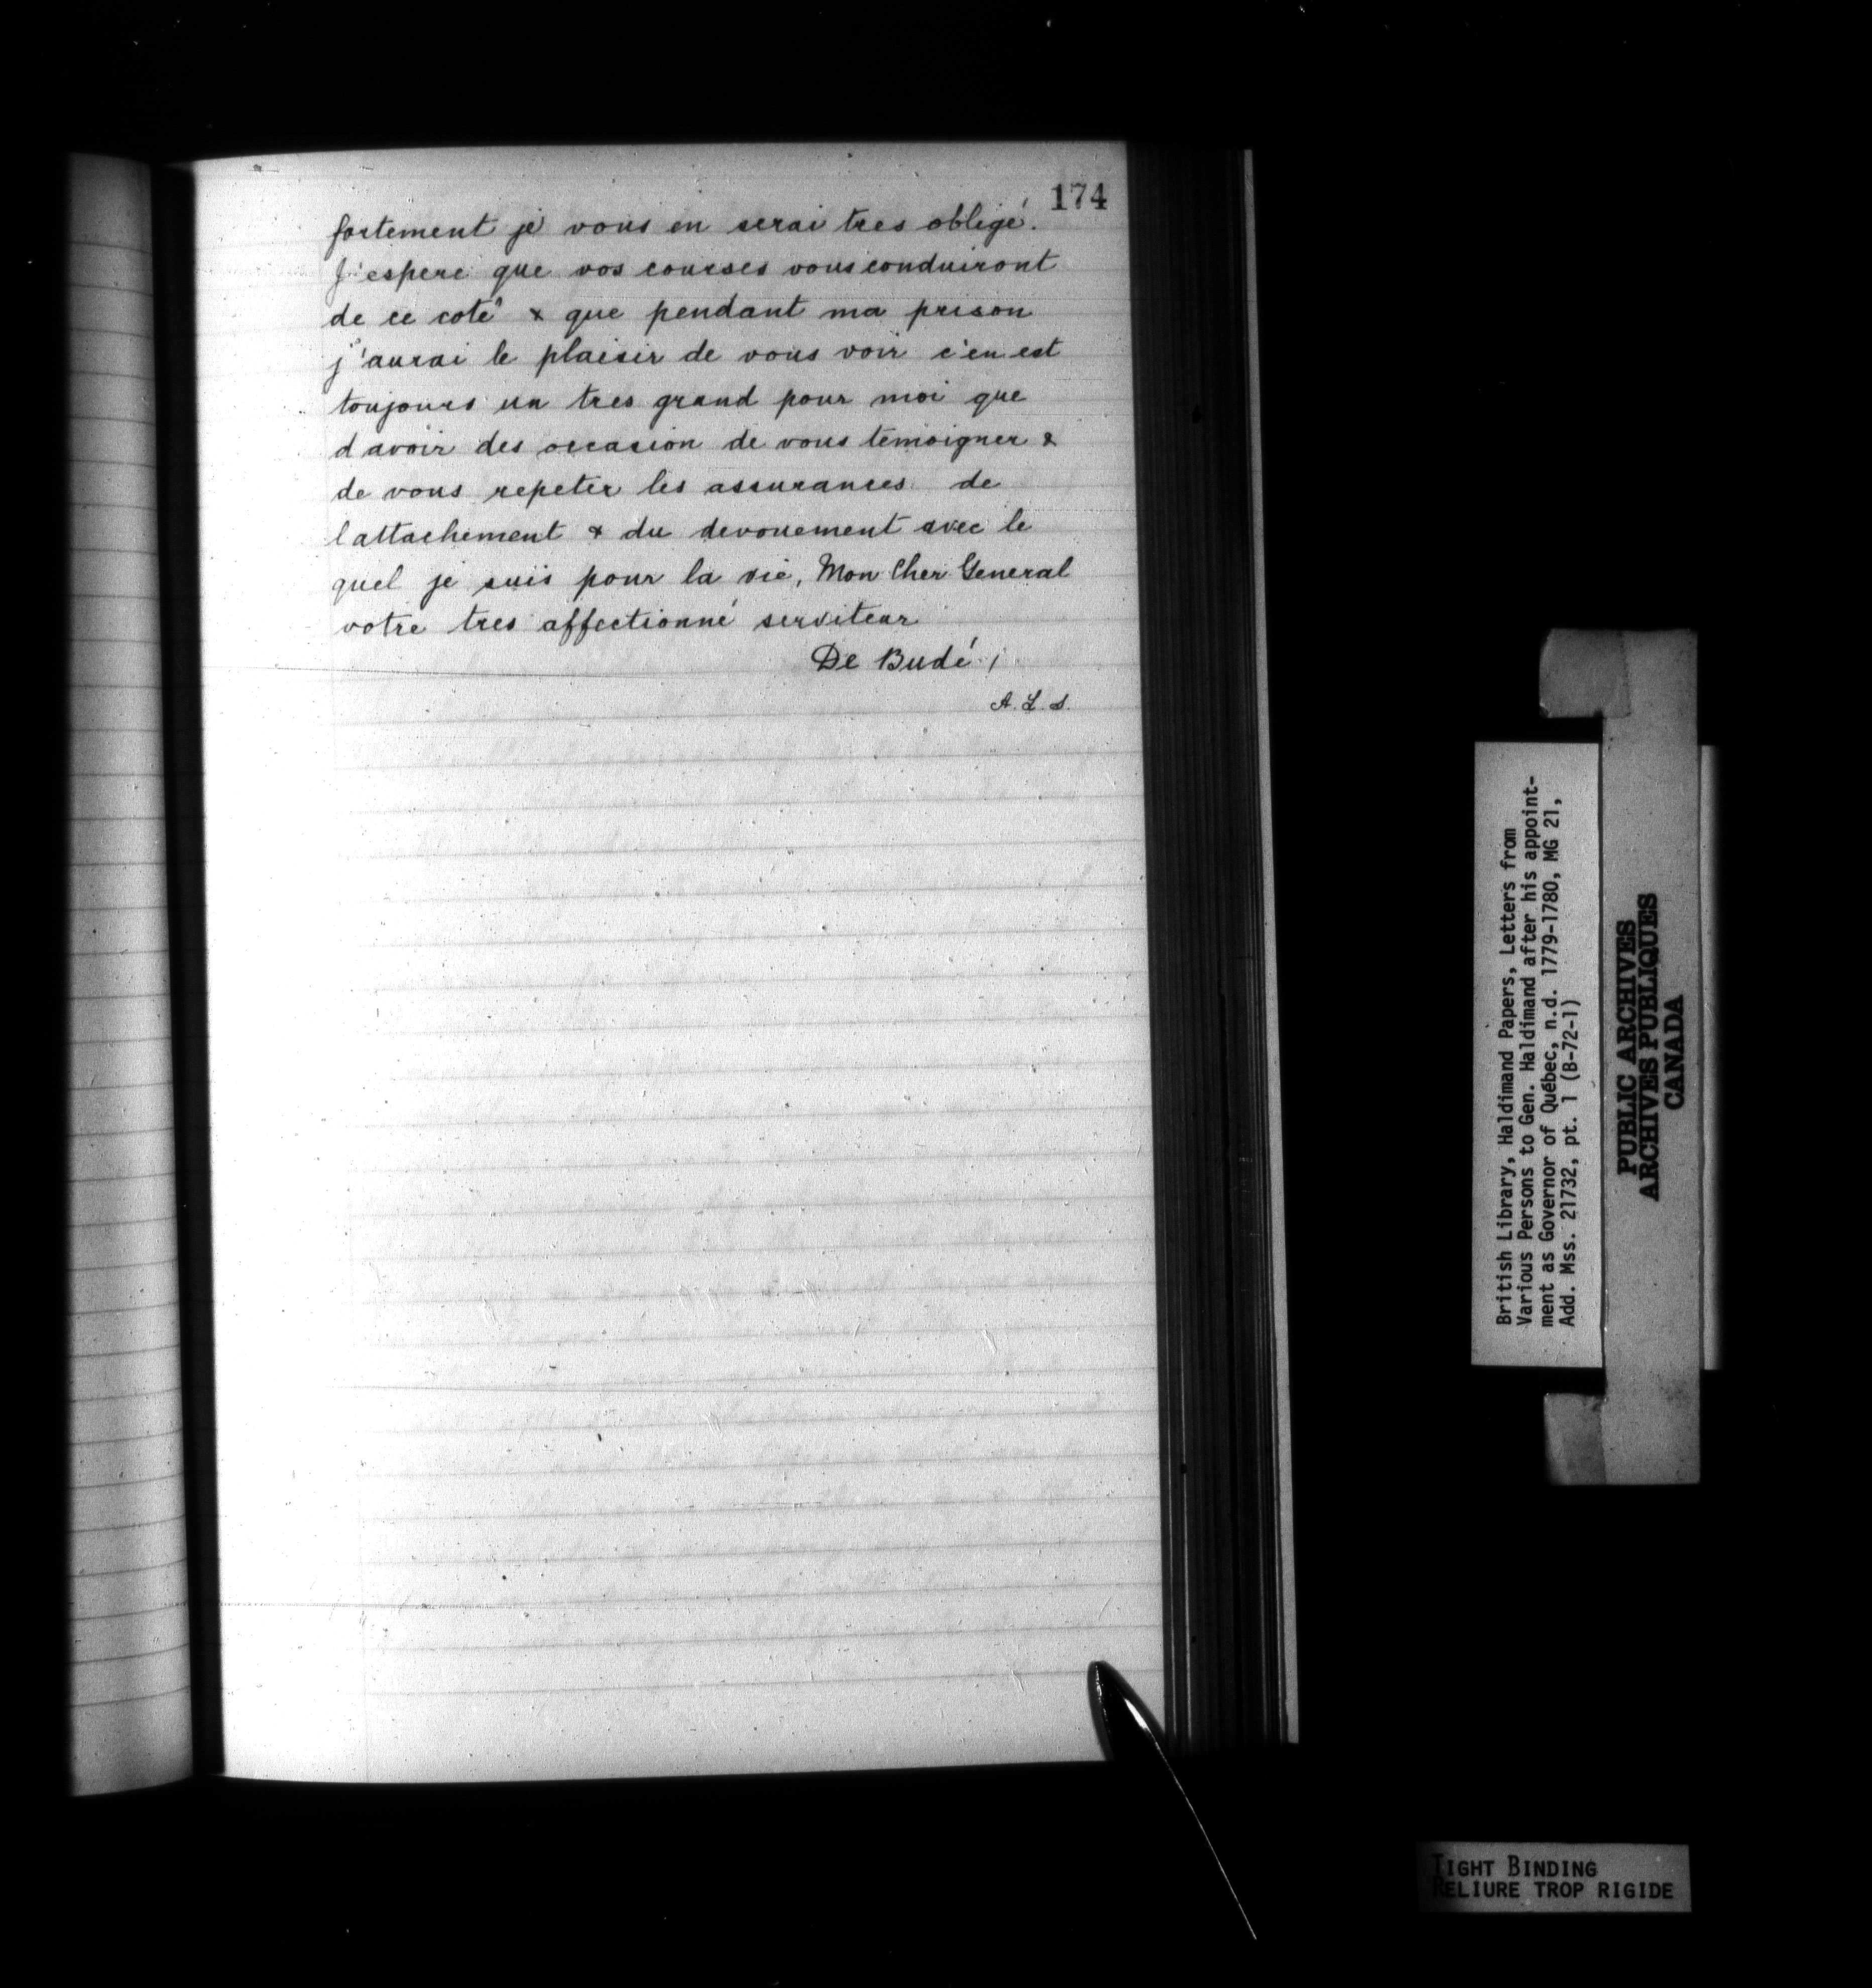 174
fortement je vous en serai tres obligé.
J'espere que vos courses vous conduiront
de ce coté & que pendant ma prison
j'aurai le plaisir de vous voir c'en est
toujours un tres grand pour moi que
d avoir des occasion de vous temoigner &
de vous repeter les assurances de
lattachement & du devouement avec le
quel je suis pour la vie, Mon Cher General
votre tres affectionné serviteur
De Budé /
A. L. S.
British Library, Haldimand Papers, Letters from
Various Persons to Gen. Haldimand after his appoint-
ment as Governor of Québec, n.d. 1779-1780, MG 21,
Add. Mss. 21732, pt. 1 (B-72-1)
PUBLIC ARCHIVES
ARCHIVES PUBLIQUES
CANADA
TIGHT BINDING
RELIURE TROP RIGIDE